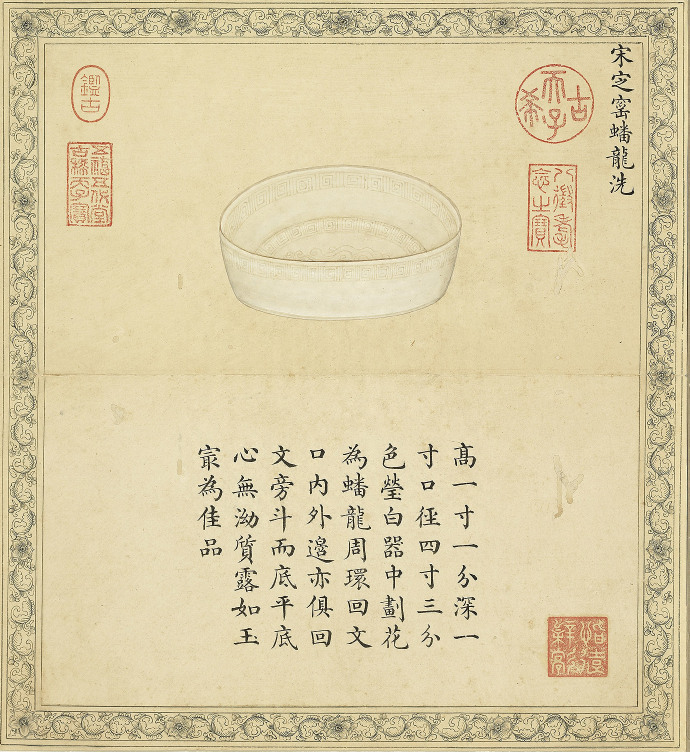 宋㝎窑蟠龍洗
古希天子
八徵耄
念之寶
鑑古
五福五代堂
古稀天子寶
髙一寸一分深一
寸口徑四寸三分
色瑩白器中劃花
為蟠龍周環回文
口内外邊亦俱回
文旁斗而底平底
心無泑質露如玉
㝡為佳品